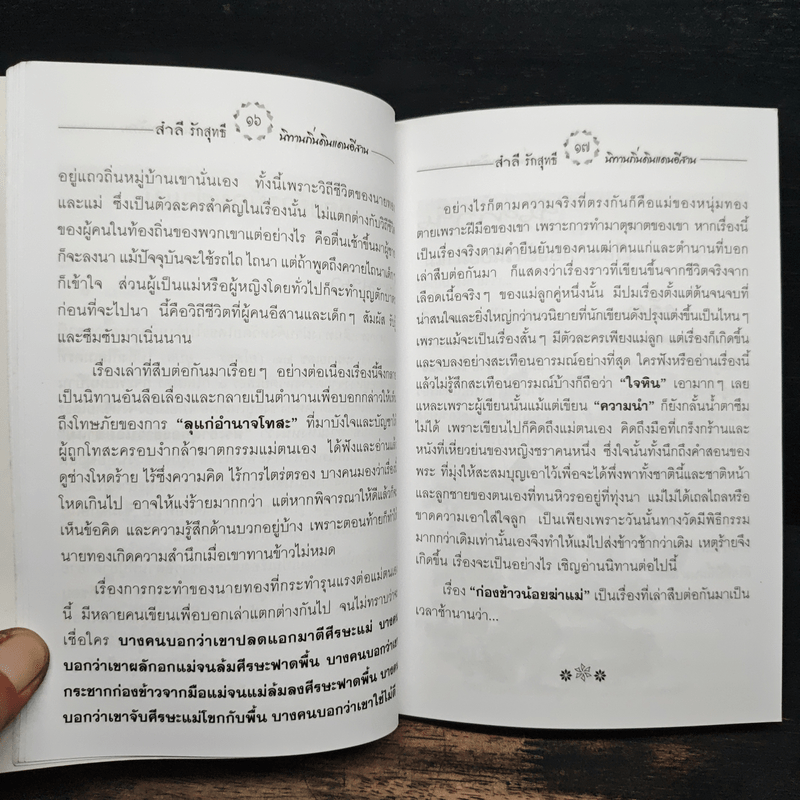 สำลี รักสุทธี ๑๖ นิทานถิ่นดินแดนอีสาน
อยู่แถวถิ่นหมู่บ้านเขานั่นเอง ทั้งนี้เพราะวิถีชีวิตของนายทอง
และแม่ ซึ่งเป็นตัวละครสำคัญในเรื่องนั้น ไม่แตกต่างกับวิถีชีวิต
ของผู้คนในท้องถิ่นของพวกเขาแต่อย่างไร คือตื่นเช้าขึ้นมาผู้ชาย
ก็จะลงนา แม้ปัจจุบันจะใช้รถไถ ไถนา แต่ถ้าพูดถึงควายไถนาเด็กๆ
ก็เข้าใจ ส่วนผู้เป็นแม่หรือผู้หญิงโดยทั่วไปก็จะทำบุญตักบาตร
ก่อนที่จะไปนา นี้คือวิถีชีวิตที่ผู้คนอีสานและเด็กๆ สัมผัส
และซึมซับมาเนิ่นนาน
เรื่องเล่าที่สืบต่อกันมาเรื่อยๆ อย่างต่อเนื่องเรื่องนี้จึงกลาย
เป็นนิทานอันลือเลื่องและกลายเป็นตำนานเพื่อบอกกล่าวให้
ถึงโทษภัยของการ “ลุแก่อำนาจโทสะ” ที่มาบังใจและบัญชา
ผู้ถูกโทสะครอบงำกล้าฆาตกรรมแม่ตนเอง ได้ฟังและอ่านแล้ว
ดูช่างโหดร้าย ไร้ซึ่งความคิด ไร้การไตร่ตรอง บางคนมองว่าเรื่องนี้
โหดเกินไป อาจให้แง่ร้ายมากกว่า แต่หากพิจารณาให้ดีแล้วก็จะ
เห็นข้อคิด และความรู้สึกด้านบวกอยู่บ้าง เพราะตอนท้ายก็ทำให้
นายทองเกิดความสำนึกเมื่อเขาทานข้าวไม่หมด
เรื่องการกระทำของนายทองที่กระทำรุนแรงต่อแม่ตนเอง
นี้ มีหลายคนเขียนเพื่อบอกเล่าแตกต่างกันไป จนไม่ทราบว่าจะ
เชื่อใคร บางคนบอกว่าเขาปลดแอกมาตีศีรษะแม่ บางคน
บอกว่าเขาผลักอกแม่จนล้มศีรษะฟาดพื้น บางคนบอกว่าเขา
กระชากก่องข้าวจากมือแม่จนแม่ล้มลงศีรษะฟาดพื้น บางคน
บอกว่าเขาจับศีรษะแม่โขกกับพื้น บางคนบอกว่าเขาใช้ไม้ตี
สำลี รักสุทธี ๑๗ นิทานถิ่นดินแดนอีสาน
อย่างไรก็ตามความจริงที่ตรงกันก็คือแม่ของหนุ่มทอง
ตายเพราะฝีมือของเขา เพราะการทำมาตุฆาตของเขา หากเรื่องนี้
เป็นเรื่องจริงตามคำยืนยันของคนเฒ่าคนแก่และตำนานที่บอก
เล่าสืบต่อกันมา ก็แสดงว่าเรื่องราวที่เขียนขึ้นจากชีวิตจริงจาก
เลือดเนื้อจริงๆ ของแม่ลูกคู่หนึ่งนั้น มีปมเรื่องตั้งแต่ต้นจนจบที่
น่าสนใจและยิ่งใหญ่กว่านวนิยายที่นักเขียนดังปรุงแต่งขึ้นเป็นไหนๆ
เพราะแม้จะเป็นเรื่องสั้นๆ มีตัวละครเพียงแม่ลูก แต่เรื่องก็เกิดขึ้น
และจบลงอย่างสะเทือนอารมณ์อย่างที่สุด ใครฟังหรืออ่านเรื่องนี้
แล้วไม่รู้สึกสะเทือนอารมณ์บ้างก็ถือว่า “ใจหิน” เอามากๆ เลย
แหละเพราะผู้เขียนนั้นแม้แต่เขียน “ความนำ” ก็ยังกลั้นน้ำตาซึม
ไม่ได้ เพราะเขียนไปก็คิดถึงแม่ตนเอง คิดถึงมือที่เกร็งกร้านและ
หนังที่เหี่ยวย่นของหญิงชราคนหนึ่ง ซึ่งใจนั้นทั้งนึกถึงคำสอนของ
พระ ที่มุ่งให้สะสมบุญเอาไว้เพื่อจะได้พึ่งพาทั้งชาตินี้และชาติหน้า
และลูกชายของตนเองที่ทนหิวรออยู่ที่ทุ่งนา แม่ไม่ได้เถลไถลหรือ
ขาดความเอาใส่ใจลูก เป็นเพียงเพราะวันนั้นทางวัดมีพิธีกรรม
มากกว่าเดิมเท่านั้นเองจึงทำให้แม่ไปส่งข้าวช้ากว่าเดิม เหตุร้ายจึง
เกิดขึ้น เรื่องจะเป็นอย่างไร เชิญอ่านนิทานต่อไปนี้
เรื่อง “ก่องข้าวน้อยฆ่าแม่” เป็นเรื่องที่เล่าสืบต่อกันมาเป็น
เวลาช้านานว่า...